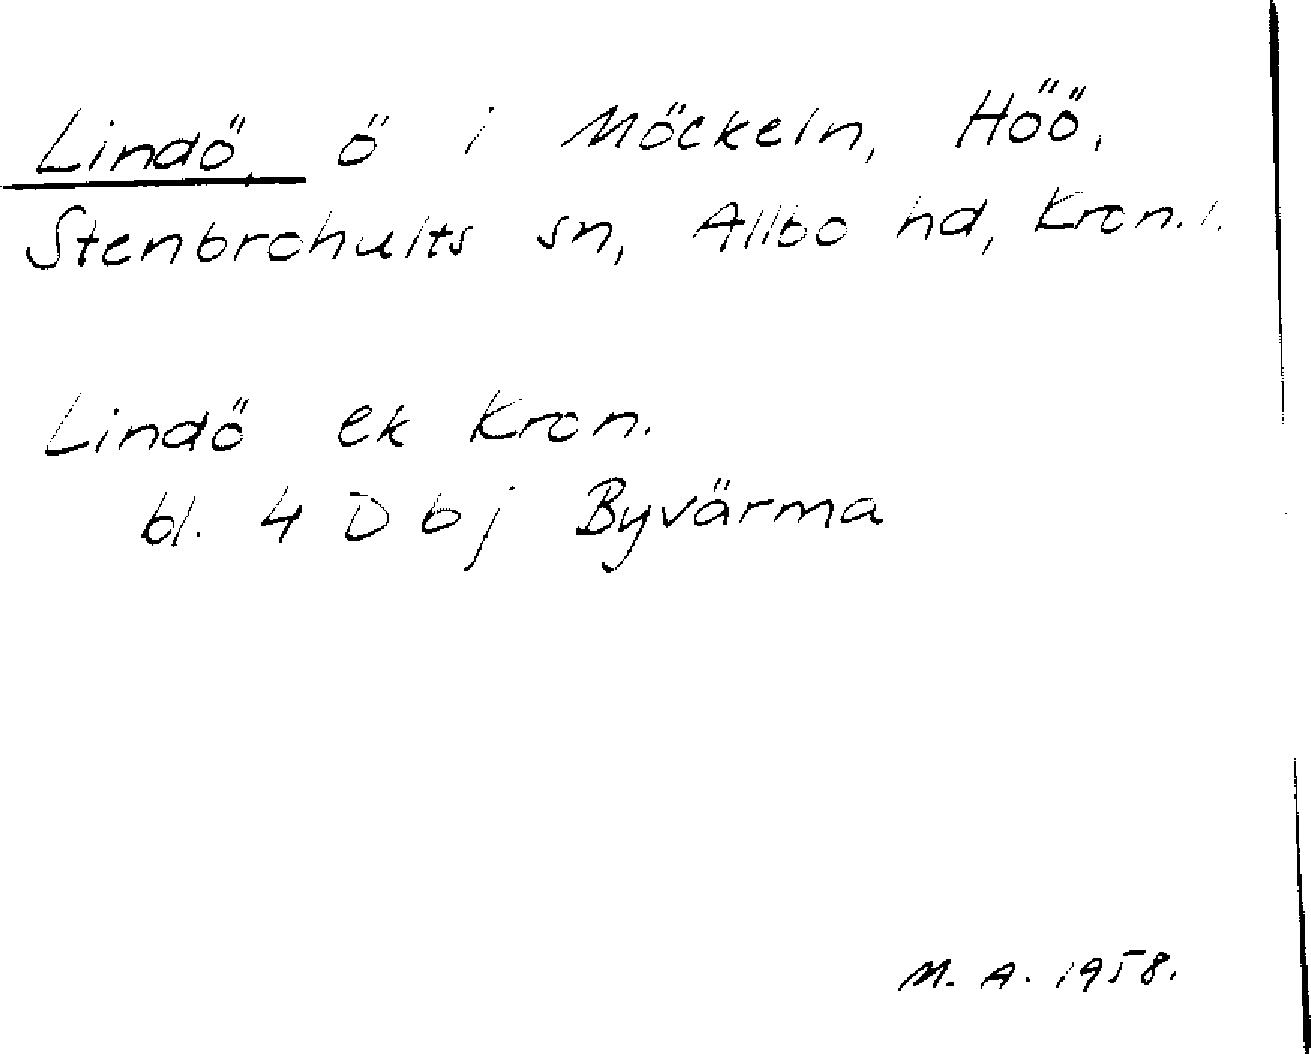 Lindö, ö i Möckeln, Höö,
Stenbrohults sn, Allbo hd, Kron. l.
Lindö ek Kron.
bl. 4 D b j Byvärma
M. A. 1958.